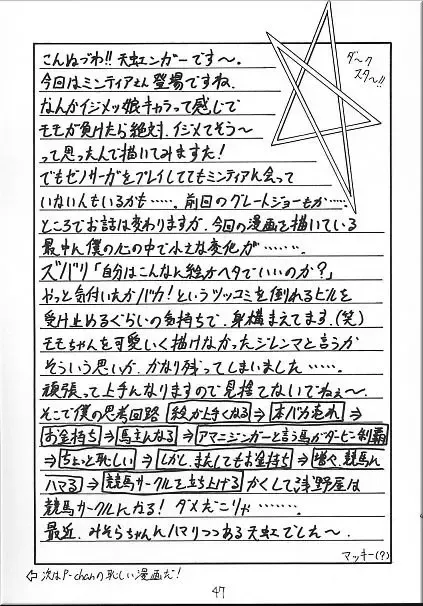 こんぬづわ!! 天虹ンガーです〜。
ダ〜ク
スタ〜!!
今回はミンティアさん登場ですね。
なんかイジメッ娘キャラって感じで
モモが負けたら絶対、イジメてそう〜
って思ったんで描いてみますた!
でもゼノサーガをプレイしててもミンティアに会って
いない人もいるかも……。前回のグレートジョーもか……
ところでお話は変わりますが、今回の漫画を描いている
最中に僕の心の中で小さな変化が………。
ズバリ「自分はこんなに絵がヘタでいいのか?」
やっと気付いたかバカ!というツッコミを倒れるビルを
受け止めるぐらいの気持ちで、身構えてます。(笑)
モモちゃんを可愛いく描けなかったジレンマと言うか
そういう思いが、かなり残ってしまいました……。
頑張って上手になりますので見捨てないでねぇ〜。
そこで僕の思考回路 絵が上手くなる⇒本バカ売れ⇒
お金持ち⇒馬主になる⇒アマニジンガーと言う馬がダービー制覇
⇒ちょっと恥しい⇒しかし、またしてもお金持ち⇒増々、競馬に
ハマる⇒競馬サークルを立ち上げる かくして浅野屋は
競馬サークルになる! ダメだこりゃ………
最近、みそらちゃんにハマりつつある天虹でした〜。
マッキー(?)
⇦ 次はP-chanの恥しい漫画だ!
47